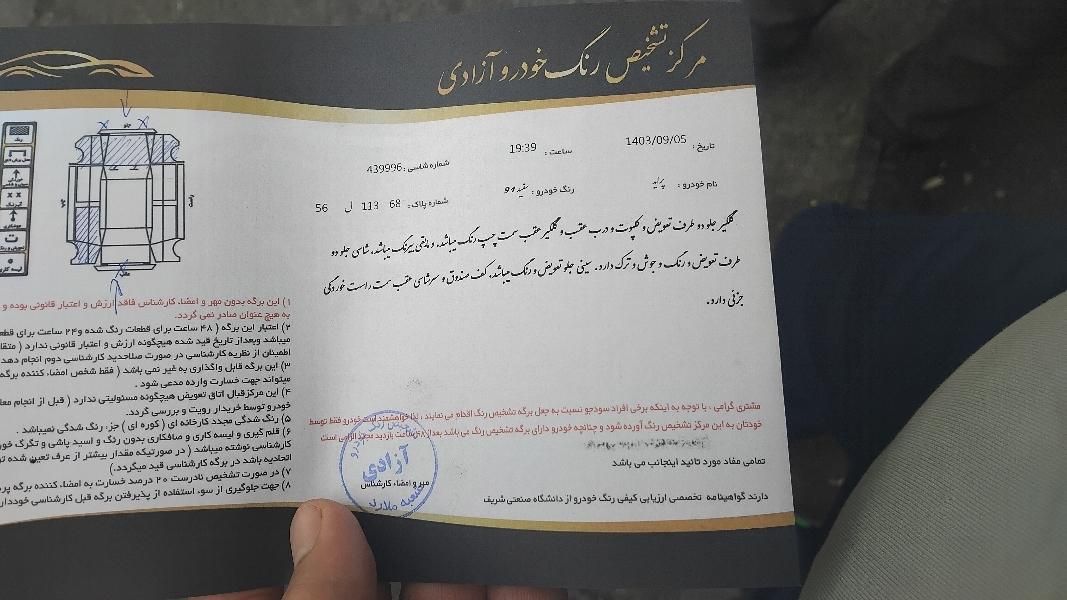 مرکز تشخیص رنگ خودرو آزادی
تاریخ : 1403/09/05
ساعت : 19:39
شماره شاسی : 439996
نام خودرو : پراید
رنگ خودرو : سفید 94
شماره پلاک : 68 113 ل 56
گلگیر جلو دو طرف تعویض و کاپوت و درب عقب و گلگیر عقب سمت چپ رنگ میباشد. و مابقی بیرنگ میباشد. شاسی جلو دو
طرف تعویض و رنگ و جوش و ترک دارد. سینی جلو تعویض و رنگ میباشد. کف صندوق و سرشاسی عقب سمت راست خوردگی
جزئی دارد.
مشتری گرامی ، با توجه به اینکه برخی افراد سودجو نسبت به جعل برگه تشخیص رنگ اقدام می نمایند ، لذا خواهشمند است خودرو فقط توسط
خودتان به این مرکز تشخیص رنگ آورده شود و چنانچه خودرو دارای برگه تشخیص رنگ می باشد بعد از ۴۸ ساعت بازدید مجدد الزامی است
تمامی مفاد مورد تائید اینجانب می باشد
مهر و امضاء کارشناس
دارنده گواهینامه تخصصی ارزیابی کیفی رنگ خودرو از دانشگاه صنعتی شریف
آزادی
شعبه ملارد
جلو
عقب
چپ
راست
رنگ
۱) این برگه بدون مهر و امضاء کارشناس فاقد ارزش و اعتبار قانونی بوده و
به هیچ عنوان صادر نمی گردد.
۲) اعتبار این برگه ( ۴۸ ساعت برای قطعات رنگ شده و ۲۴ ساعت برای
میباشد و بعد از تاریخ قید شده هیچگونه ارزش و اعتبار قانونی ندارد
اطمینان از نظریه کارشناسی در صورت صلاحدید کارشناسی دوم انجام دهد
۳) این برگه قابل واگذاری به غیر نمی باشد ( فقط شخص امضاء کننده برگه
میتواند جهت خسارت وارده مدعی شود .
۴) این مرکز قبال اتاق تعویض هیچگونه مسئولیتی ندارد ( قبل از انجام
خودرو توسط خریدار رویت و بررسی گردد.
۵) رنگ شدگی مجدد کارخانه ای ( کوره ای ) جزء رنگ شدگی نمیباشد .
۶) قلم گیری و لیسه کاری و صافکاری بدون رنگ و اسید پاشی و تگرگ
کارشناسی نوشته میباشد ( در صورتیکه مقدار بیشتر از عرف تعیین شده
اتحادیه باشد در برگه کارشناسی قید میگردد.)
۷) در صورت تشخیص نادرست ۲۰ درصد خسارت به امضاء کننده برگه
۸) جهت جلوگیری از سوء استفاده از پذیرفتن برگه قبل کارشناسی